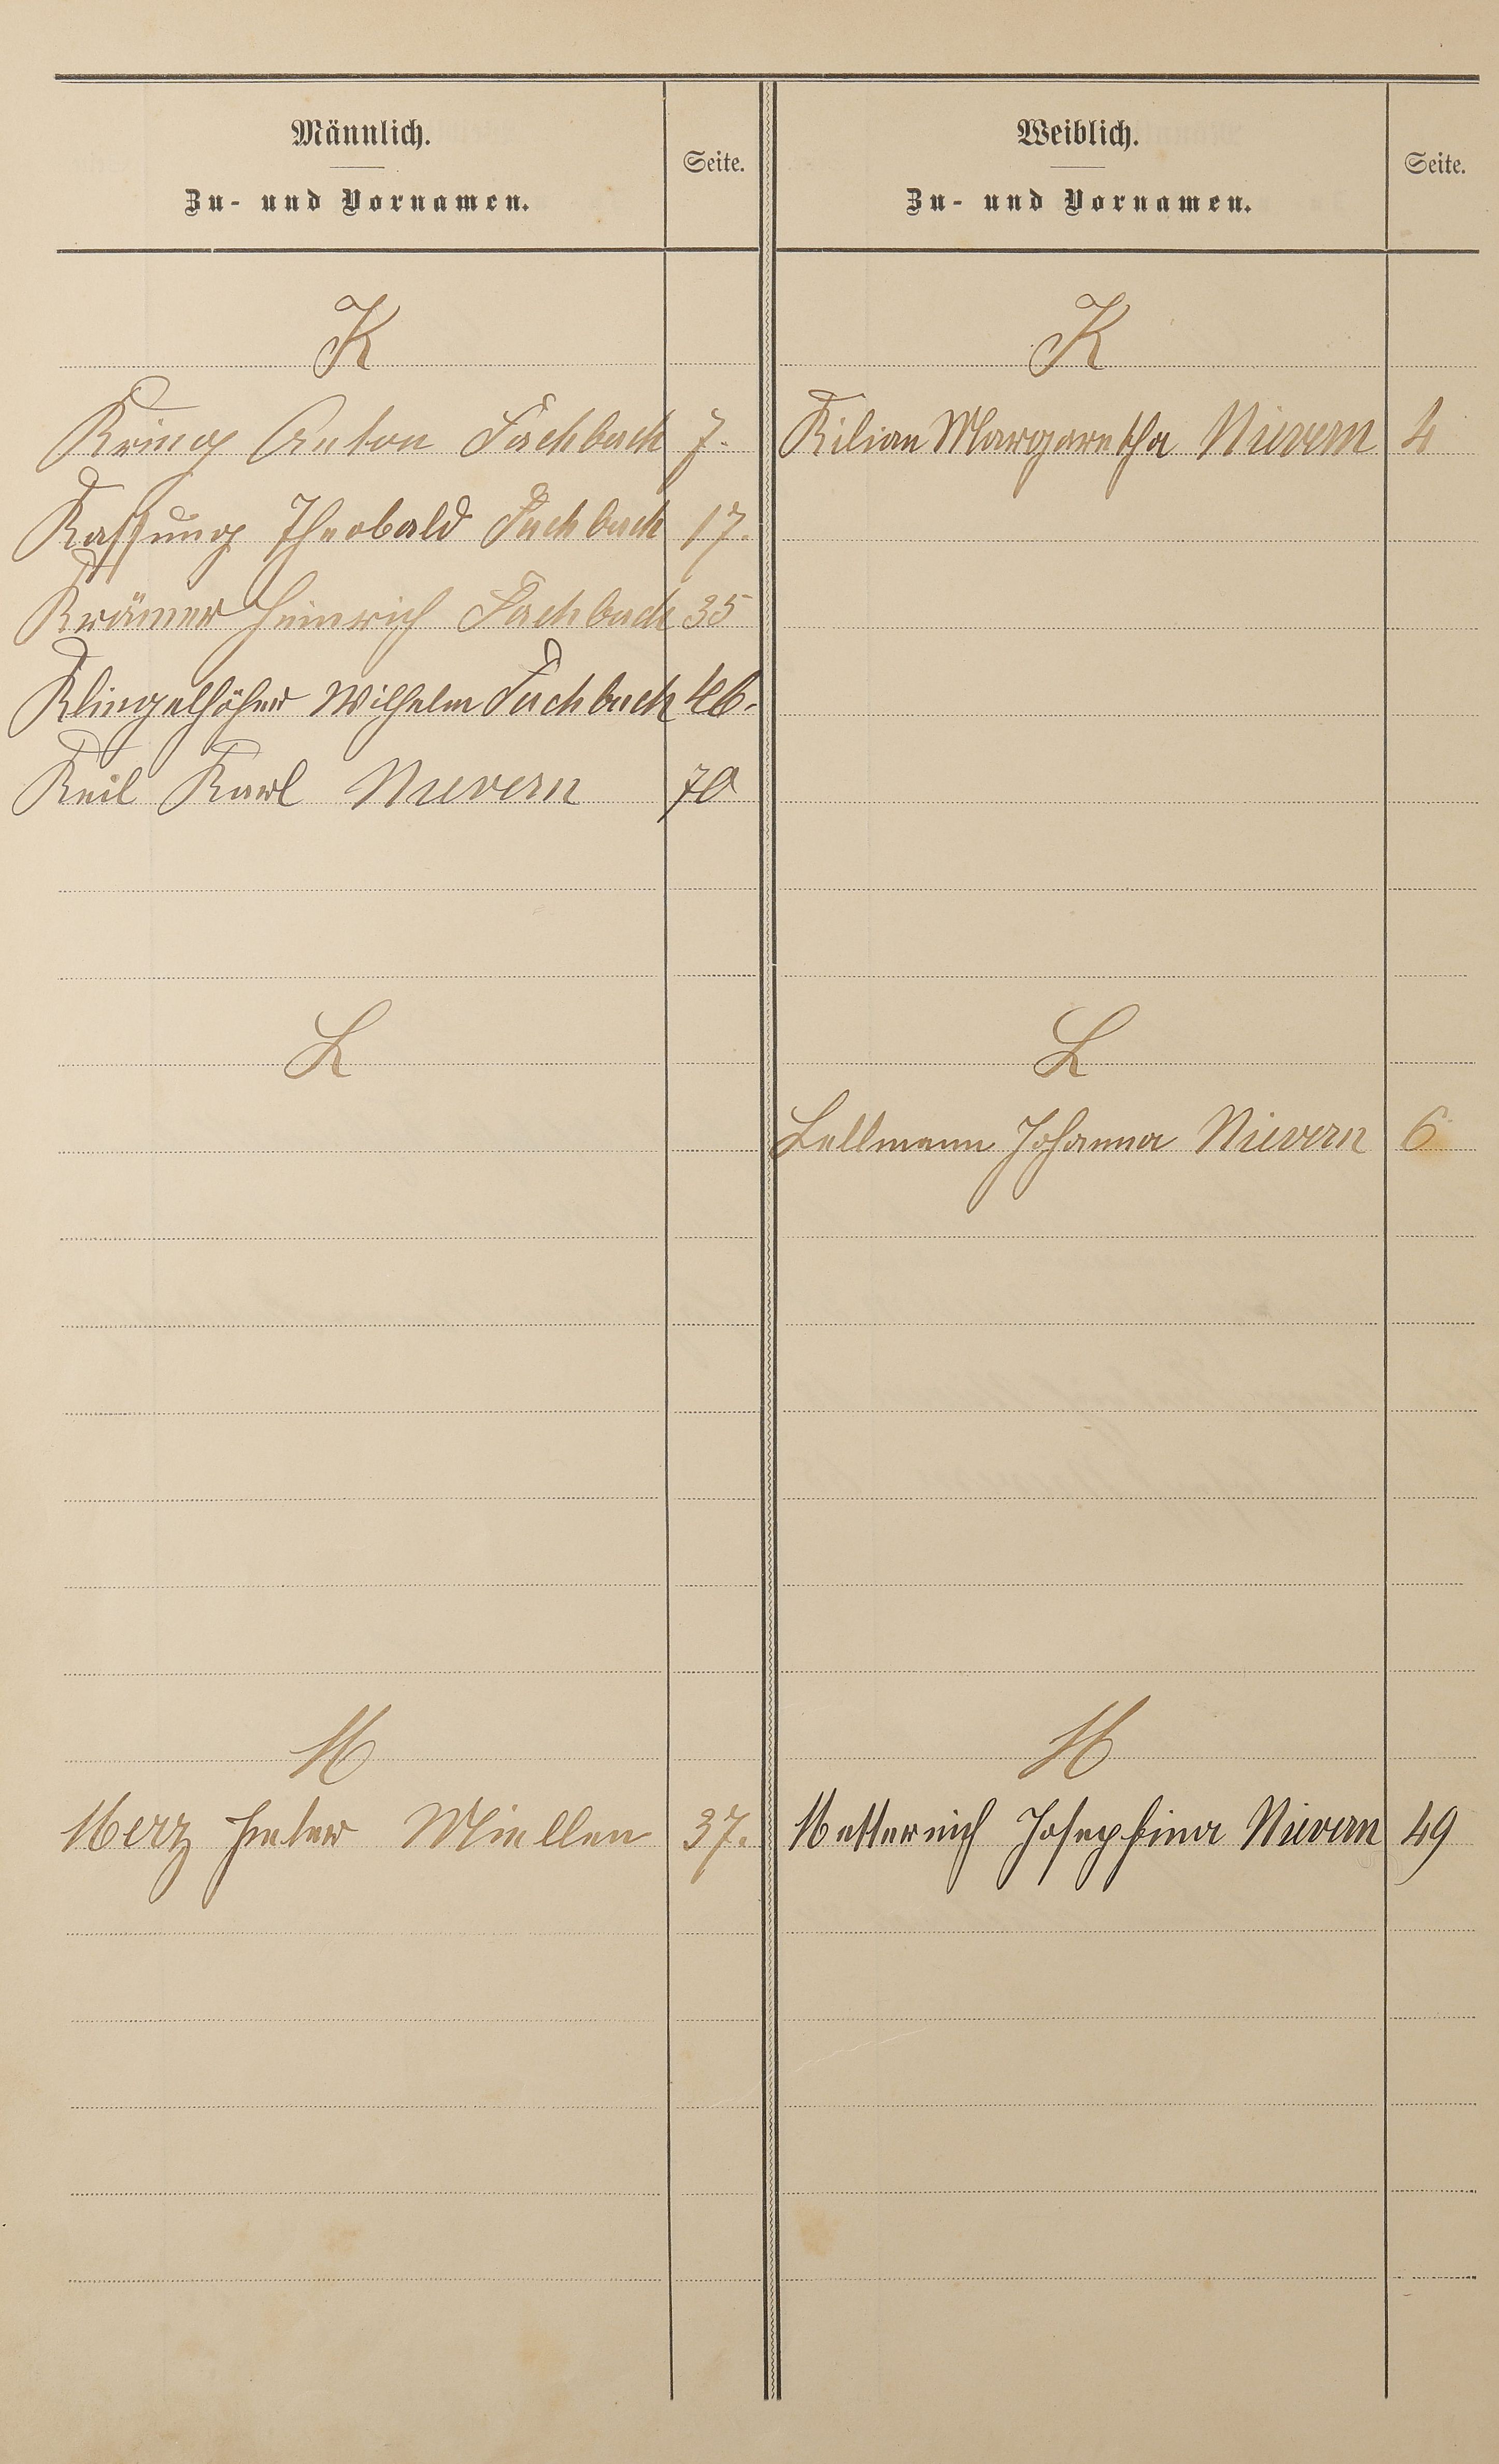 Männlich.
Zu- und Vornamen.
Seite.
K
Kring Anton Fachbach 7.
Kassung Theobald Fachbach 17.
Krämer Heinrich Fachbach 35
Klingelhöfer Wilhelm Fachbach 46.
Keil Karl Nievern 70
L
M
Merz Peter Miellen 37.
Weiblich.
Zu- und Vornamen.
Seite.
K
Kilian Margaretha Nievern 4
L
Lellmann Johanna Nievern 6
M
Metternich Josephina Nievern 49